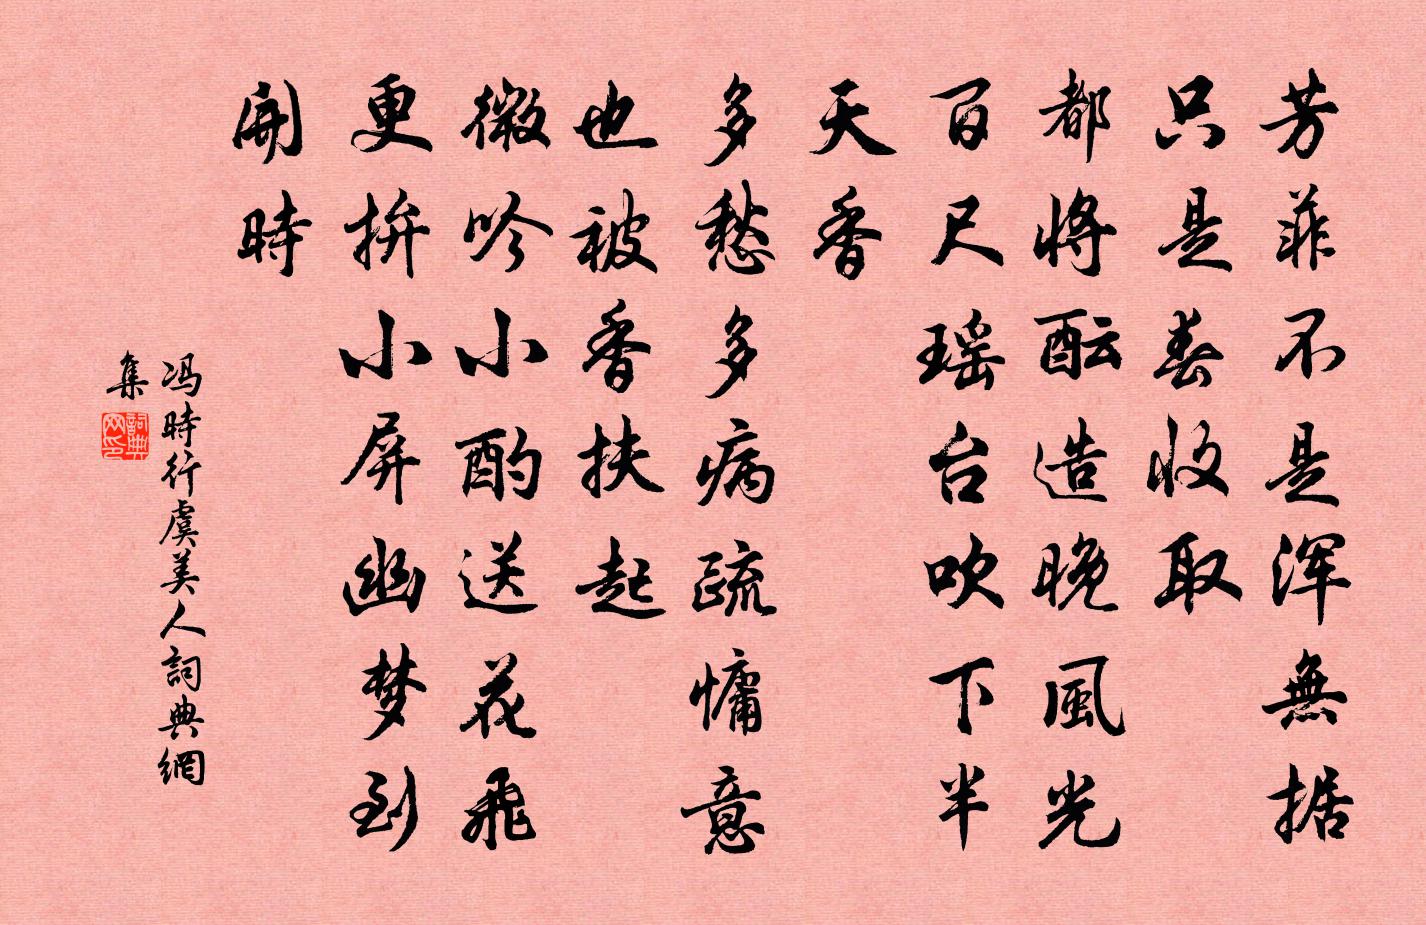 芳菲不是浑無据
只是春收取
都將酝造晚風光
百尺瑶台吹下半
天香
多愁多病疏慵意
也被香扶起
微吟小酌送花飛
更拚小屏幽梦到
開時
冯時行虞美人詞典網
集
詞典网印